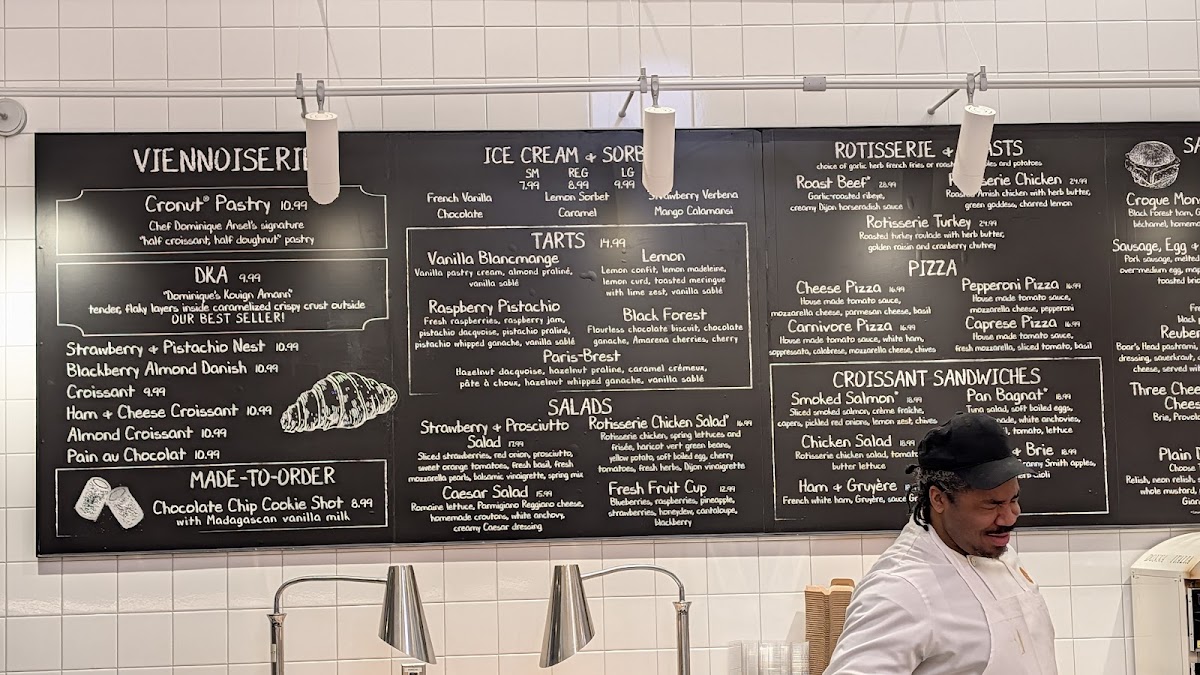 VIENNOISERIE
Cronut® Pastry 10.99
Chef Dominique Ansel's signature
"half croissant, half doughnut" pastry
DKA 9.99
"Dominique's Kouign Amann"
tender, flaky layers inside caramelized crispy crust outside
OUR BEST SELLER!
Strawberry & Pistachio Nest 10.99
Blackberry Almond Danish 10.99
Croissant 9.99
Ham & Cheese Croissant 10.99
Almond Croissant 10.99
Pain au Chocolat 10.99
MADE-TO-ORDER
Chocolate Chip Cookie Shot 8.99
with Madagascan vanilla milk
ICE CREAM & SORB
SM REG LG
7.99 8.99 9.99
French Vanilla Lemon Sorbet Strawberry Verbena
Chocolate Caramel Mango Calamansi
TARTS 14.99
Vanilla Blancmange
Vanilla pastry cream, almond praliné,
vanilla sablé
Lemon
Lemon confit, lemon madeleine,
lemon curd, toasted meringue
with lime zest, vanilla sablé
Raspberry Pistachio
Fresh raspberries, raspberry jam,
pistachio dacquoise, pistachio praliné,
pistachio whipped ganache, vanilla sablé
Black Forest
Flourless chocolate biscuit, chocolate
ganache, Amarena cherries, cherry
Paris-Brest
Hazelnut dacquoise, hazelnut praline, caramel crémeux,
pâte à choux, hazelnut whipped ganache, vanilla sablé
SALADS
Strawberry & Prosciutto
Salad 17.99
Sliced strawberries, red onion, prosciutto,
sweet orange tomatoes, fresh basil, fresh
mozzarella pearls, balsamic vinaigrette, spring mix
Caesar Salad 15.99
Romaine lettuce, Parmigiano Reggiano cheese,
homemade croutons, white anchovy,
creamy Caesar dressing
Rotisserie Chicken Salad* 16.99
Rotisserie chicken, spring lettuces and
frisée, haricot vert green beans,
yellow potato, soft boiled egg, cherry
tomatoes, fresh herbs, Dijon vinaigrette
Fresh Fruit Cup 12.99
Blueberries, raspberries, pineapple,
strawberries, honeydew, cantaloupe,
blackberry
ROTISSERIE & ASTS
choice of garlic herb french fries or roast les and potatoes
Roast Beef* 28.99
Garlic-roasted ribeye,
creamy Dijon horseradish sauce
sserie Chicken 24.99
Roasted Amish chicken with herb butter,
green goddess, charred lemon
Rotisserie Turkey 24.99
Roasted turkey roulade with herb butter,
golden raisin and cranberry chutney
PIZZA
Cheese Pizza 16.99
House made tomato sauce,
mozzarella cheese, parmesan cheese, basil
Pepperoni Pizza 16.99
House made tomato sauce,
mozzarella cheese, pepperoni
Carnivore Pizza 16.99
House made tomato sauce, white ham,
soppressata, calabrese, mozzarella cheese, chives
Caprese Pizza 16.99
House made tomato sauce,
fresh mozzarella, sliced tomato, basil
CROISSANT SANDWICHES
Smoked Salmon* 18.99
Sliced smoked salmon, crème fraîche,
capers, pickled red onions, lemon zest, chives
Pan Bagnat* 18.99
Tuna salad, soft boiled eggs,
made, white anchovies,
tomato, lettuce
Chicken Salad 18.99
Rotisserie chicken salad, tomato
butter lettuce
& Brie 18.99
anny Smith apples,
Ham & Gruyère
French white ham, Gruyère, sauce
SA
Croque Mon
Black forest ham,
béchamel, homema
Sausage, Egg &
Pork sausage, melted
over-medium egg, ma
toasted br
Reuben
Boar's Head pastrami,
dressing, sauerkraut, c
cheese, served wi
Three Chee
Chees
Brie, Provo
Plain D
Choose
Relish, neon relish, s
whole mustard,
Gian